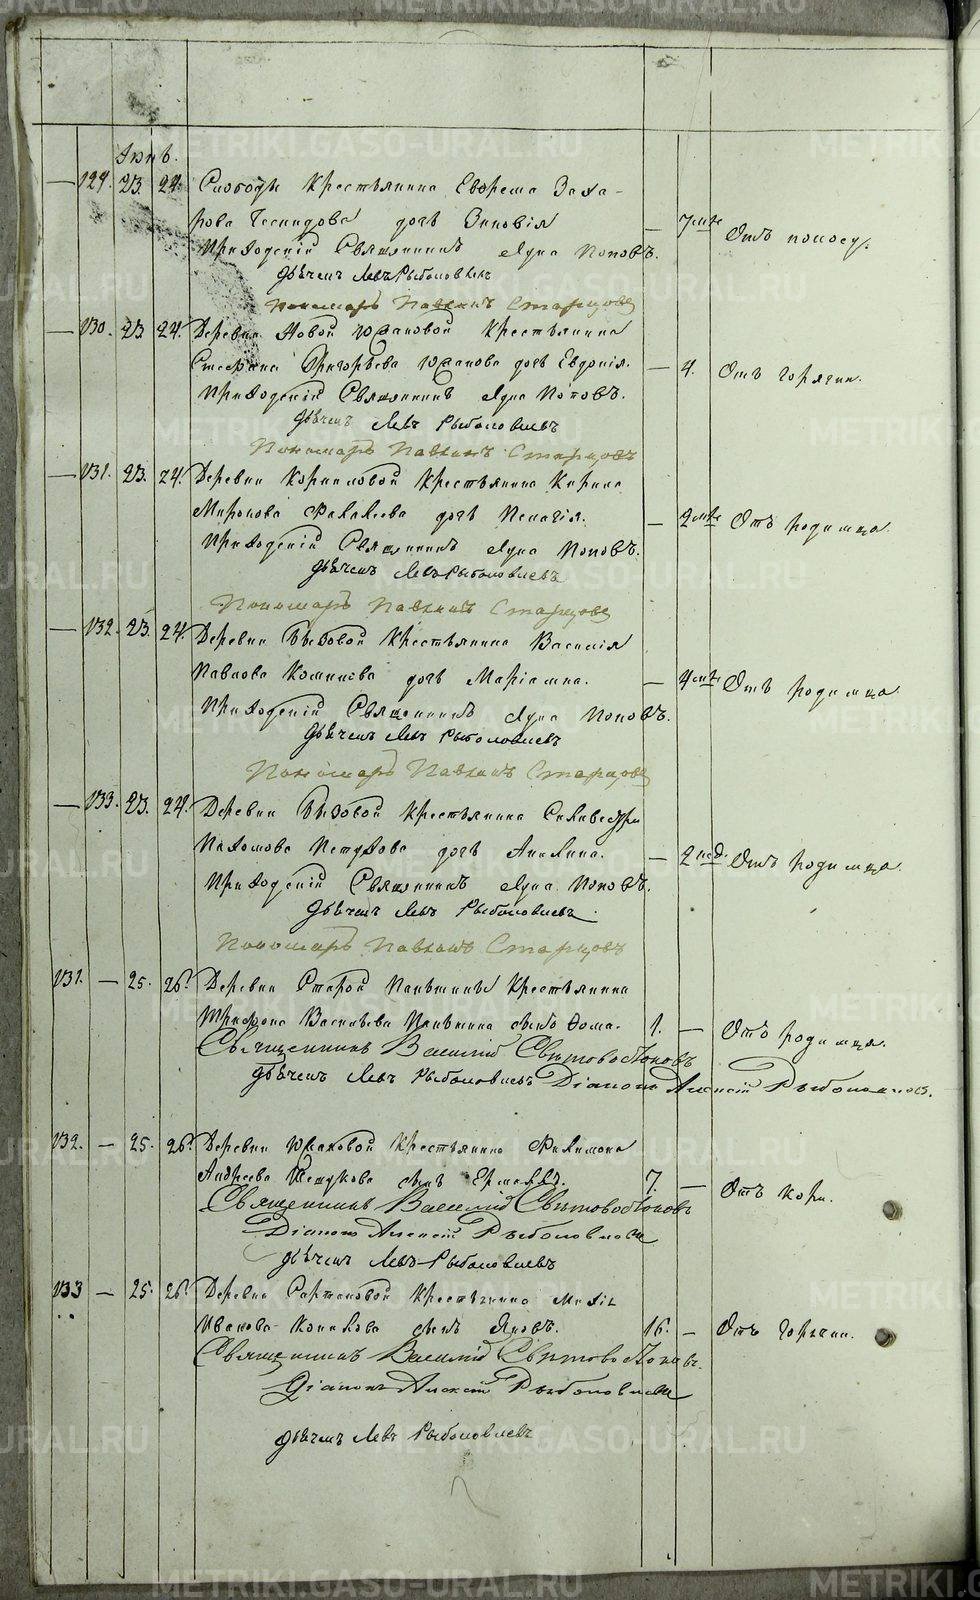 Июнь.
129. 23. 24. Слободы Крестьянина Ефрема Заха-
рова дочь Зиновія — 7 мце Отъ поносу.
Приходскій Священникъ Яковъ Поповъ.
Дьячекъ Левъ Рыболовлевъ
Пономарь Павлинъ Старцовъ
130. 23. 24. Деревни Новой Юшановой Крестьянина
Стефана Григорьева Юшанова дочь Евдокія. — 4. Отъ горячки.
Приходскій Священникъ Поповъ.
Дьячекъ Левъ Рыболовлевъ
Пономарь Павлинъ Старцовъ
131. 23. 24. Деревни Корниловой Крестьянина Карпа
Миронова Фалалеева дочь Пелагія. — 2 мце Отъ родимца
Приходскій Священникъ Поповъ.
Дьячекъ Левъ Рыболовлевъ
Пономарь Павлинъ Старцовъ
132. 23. 24. Деревни Бызовой Крестьянина Василія
Павлова дочь Маріамна. — 4 мце Отъ родимца
Приходскій Священникъ Поповъ.
Дьячекъ Левъ Рыболовлевъ
Пономарь Павлинъ Старцовъ
133. 23. 24. Деревни Бызовой Крестьянина Силивестра
Пахомова Петухова дочь Акилина. — 2 нед. Отъ родимца.
Приходскій Священникъ Поповъ.
Дьячекъ Левъ Рыболовлевъ
Пономарь Павлинъ Старцовъ
131. — 25. 26. Деревни Старой Паньшиной Крестьянина
Трифона Васильева Паньшина сынъ Фома. 1. — Отъ родимца.
Священникъ Василій Свѣтовостоковъ
Дьячекъ Левъ Рыболовлевъ Діаконъ Алексій Рыболовлевъ.
132. — 25. 26. Деревни Юшановой Крестьянина Филимона
Андреева сынъ Ермолай. 7. — Отъ кори.
Священникъ Василій Свѣтовостоковъ
Діаконъ Алексій Рыболовлевъ
Дьячекъ Левъ Рыболовлевъ
133 — 25. 26. Деревни Сартаковой Крестьянина
Иванова Конахова сынъ Яковъ. 16. — Отъ горячки.
Священникъ Василій Свѣтовостоковъ.
Діаконъ Алексій Рыболовлевъ
Дьячекъ Левъ Рыболовлевъ
METRIKI.GASO-URAL.RU